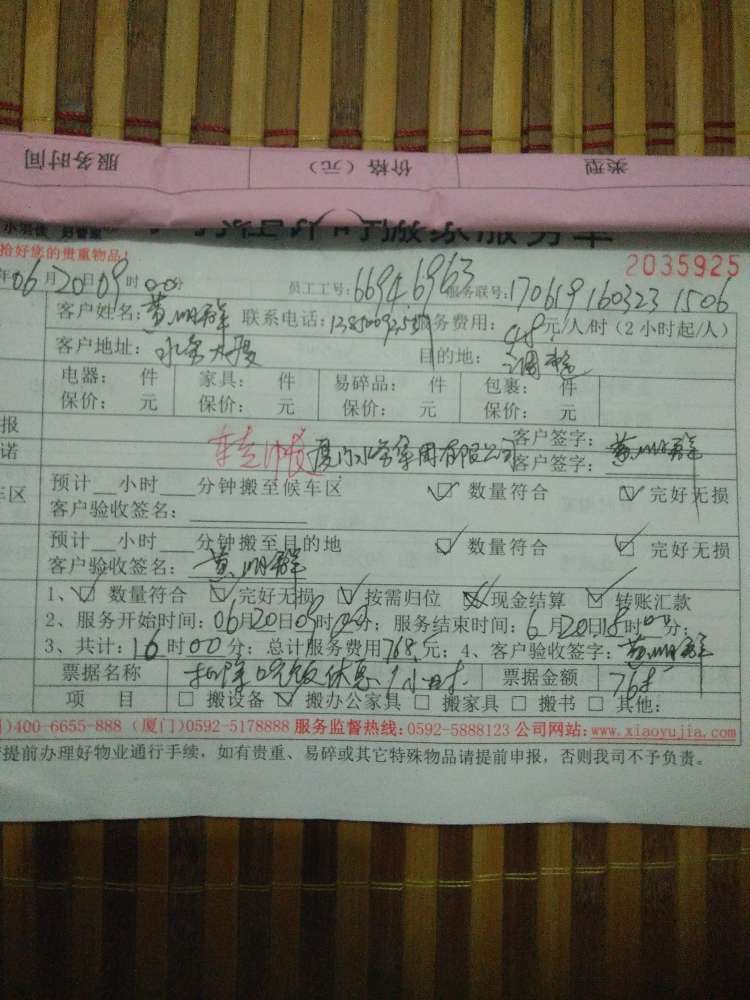 类型 价格（元） 服务时间
搬家服务单
拾好您的贵重物品！ 2035925
年06月20日09时00分 员工工号：66946963 服务联号：1706191603231506
客户姓名：黄明群 联系电话： 服务费用：48元/人/时（2小时起/人）
客户地址：水务大厦 目的地：调整
电器： 件 家具： 件 易碎品： 件 包裹： 件
保价： 元 保价： 元 保价： 元 保价： 元
报 客户签字：黄明群
诺 厦门水务集团有限公司 客户签字：
车区 预计___小时___分钟搬至候车区 ☑数量符合 ☑完好无损
客户验收签名：
预计___小时___分钟搬至目的地 ☑数量符合 ☑完好无损
客户验收签名：黄明群
1、☑数量符合 ☑完好无损 ☑按需归位 现金结算 ☑转账汇款
2、服务开始时间：06月20日09时00分；服务结束时间：6月20日18时00分；
3、共计：16时00分；总计服务费用768元；4、客户验收签字：黄明群
票据名称 扣除吃饭休息1小时 票据金额 768
项 目 □搬设备 ☑搬办公家具 □搬家具 □搬书 □其他：
)400-6655-888（厦门）0592-5178888 服务监督热线：0592-5888123 公司网站：www.xiaoyujia.com
提前办理好物业通行手续，如有贵重、易碎或其它特殊物品请提前申报，否则我司不予负责。